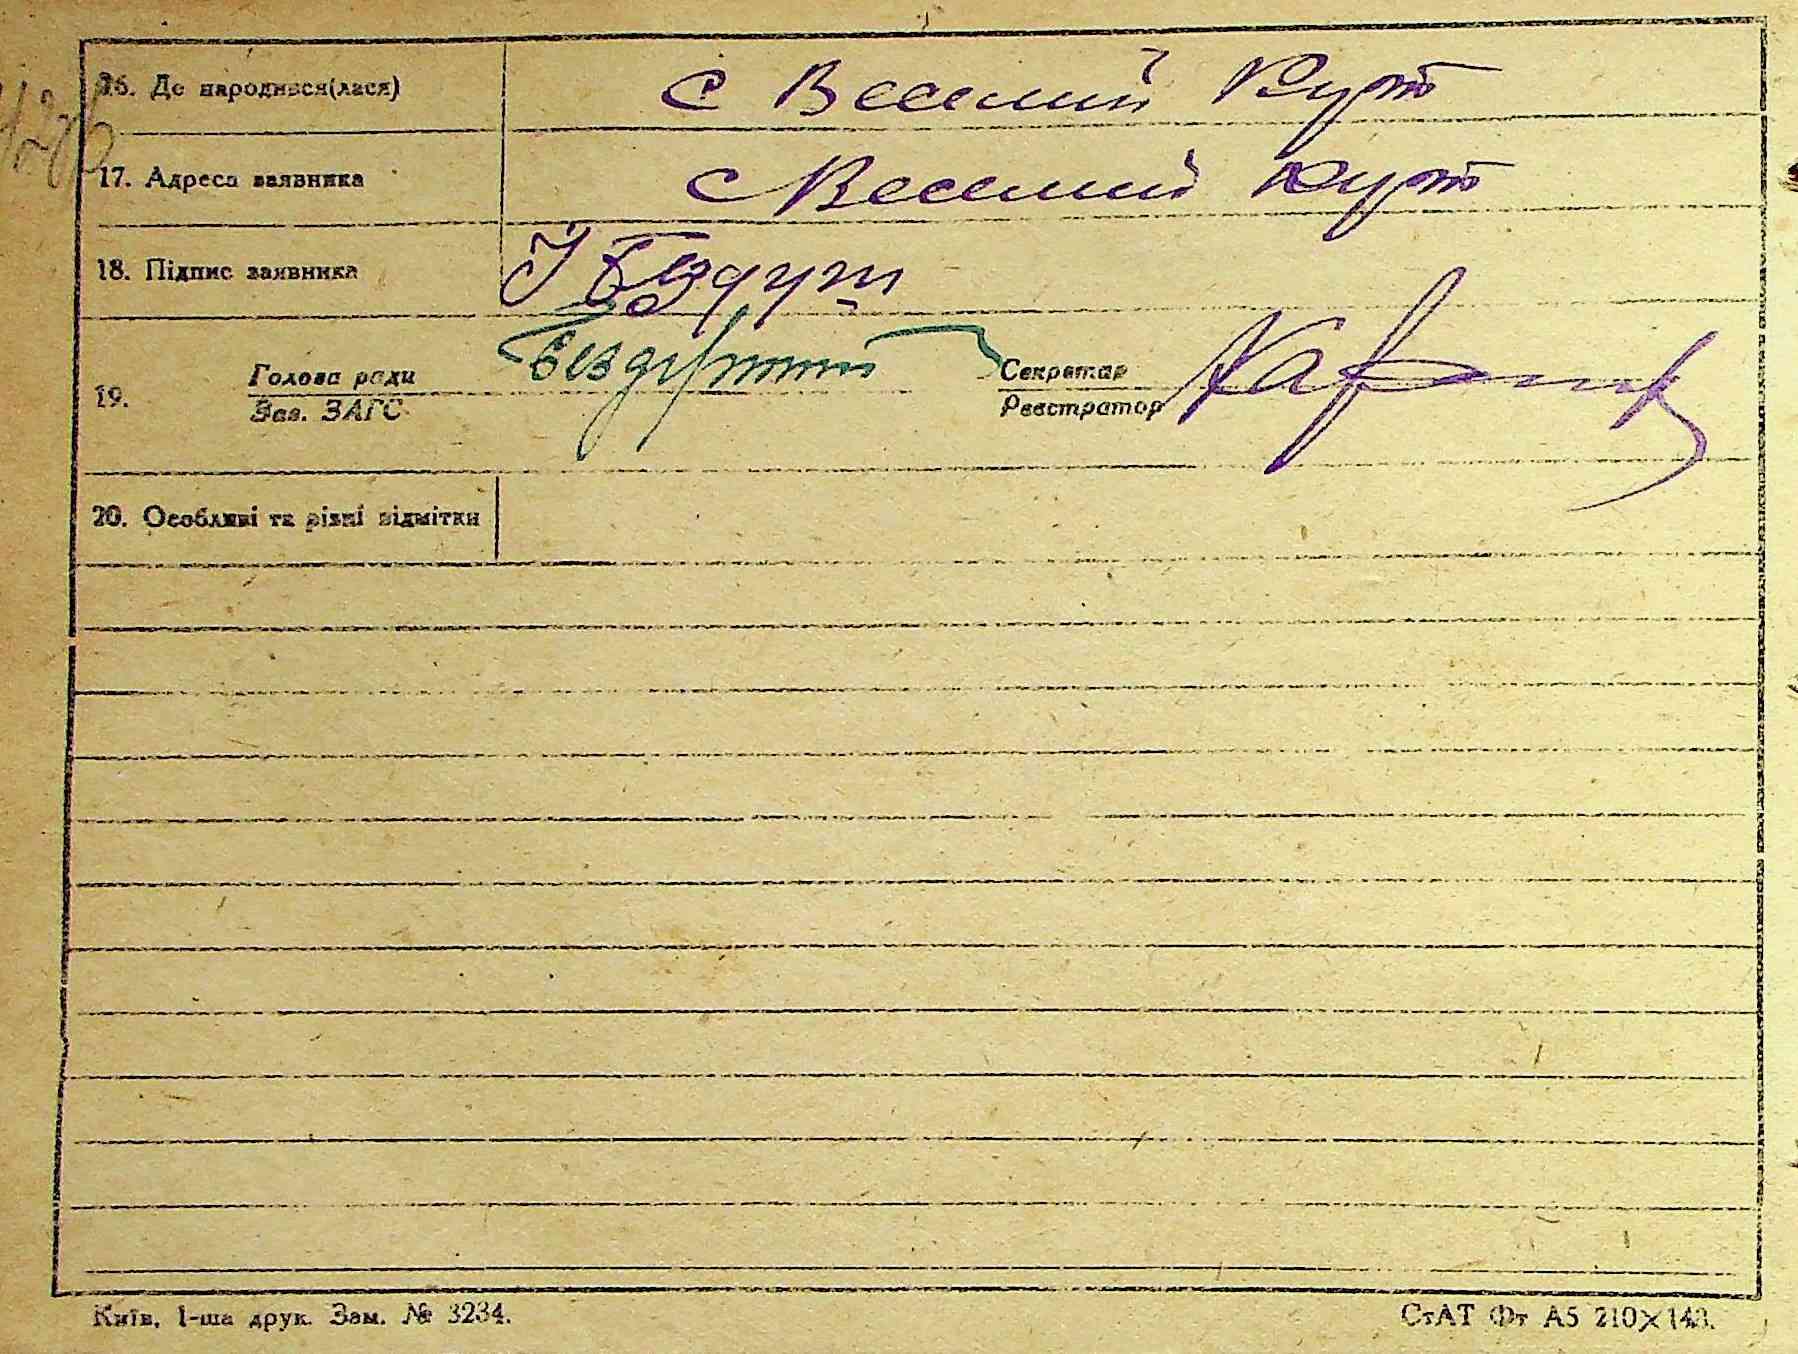 16. Де народився(лася) с Веселий Кут
17. Адреса заявника с Веселий Кут
18. Підпис заявника
19. Голова ради Бездітний Секретар
Зав. ЗАГС Реєстратор
20. Особливі та різні відмітки
Київ, 1-ша друк. Зам. № 3234. СтАТ Фт А5 210×148.